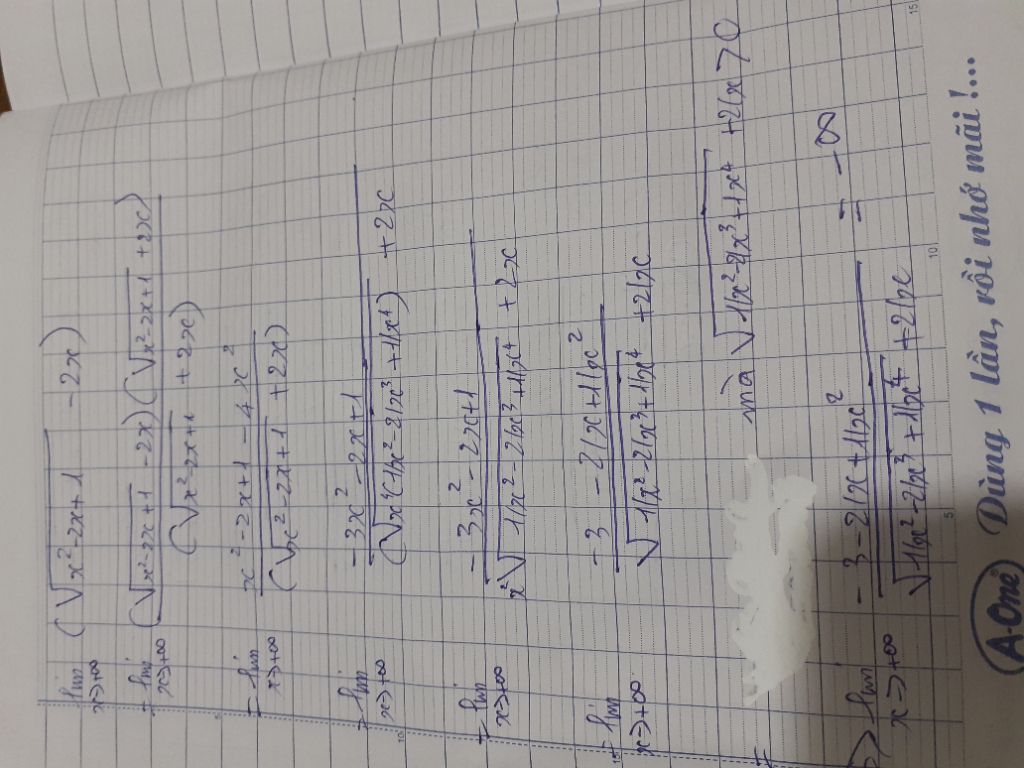 lim x->+∞ (√(x²-2x+1) - 2x)
= lim x->+∞ (√(x²-2x+1) - 2x)(√(x²-2x+1) + 2x) / (√(x²-2x+1) + 2x)
= lim x->+∞ x² - 2x + 1 - 4x² / (√(x²-2x+1) + 2x)
= lim x->+∞ -3x² - 2x + 1 / (√(x⁴(1/x² - 2/x³ + 1/x⁴)) + 2x
= lim x->+∞ -3x² - 2x + 1 / x²√(1/x² - 2/x³ + 1/x⁴) + 2x
= lim x->+∞ -3 - 2/x + 1/x² / √(1/x² - 2/x³ + 1/x⁴) + 2/x
= mà √(1/x² - 2/x³ + 1/x⁴) + 2/x > 0
=> lim x->+∞ -3 - 2/x + 1/x² / √(1/x² - 2/x³ + 1/x⁴) + 2/x = -∞
A·One Dùng 1 lần, rồi nhớ mãi!...
5
10
15
5
10
15